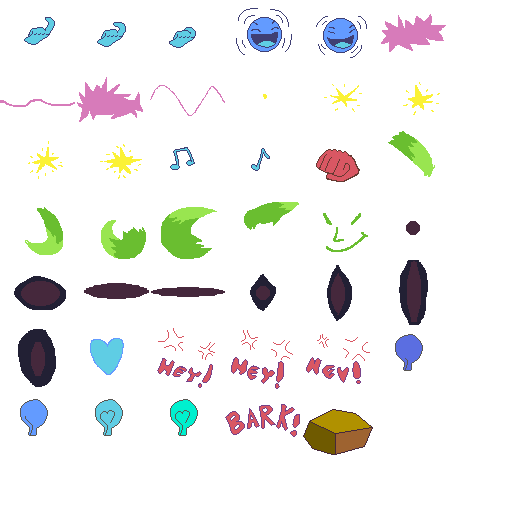 Hey! Hey! Hey!
BARK!